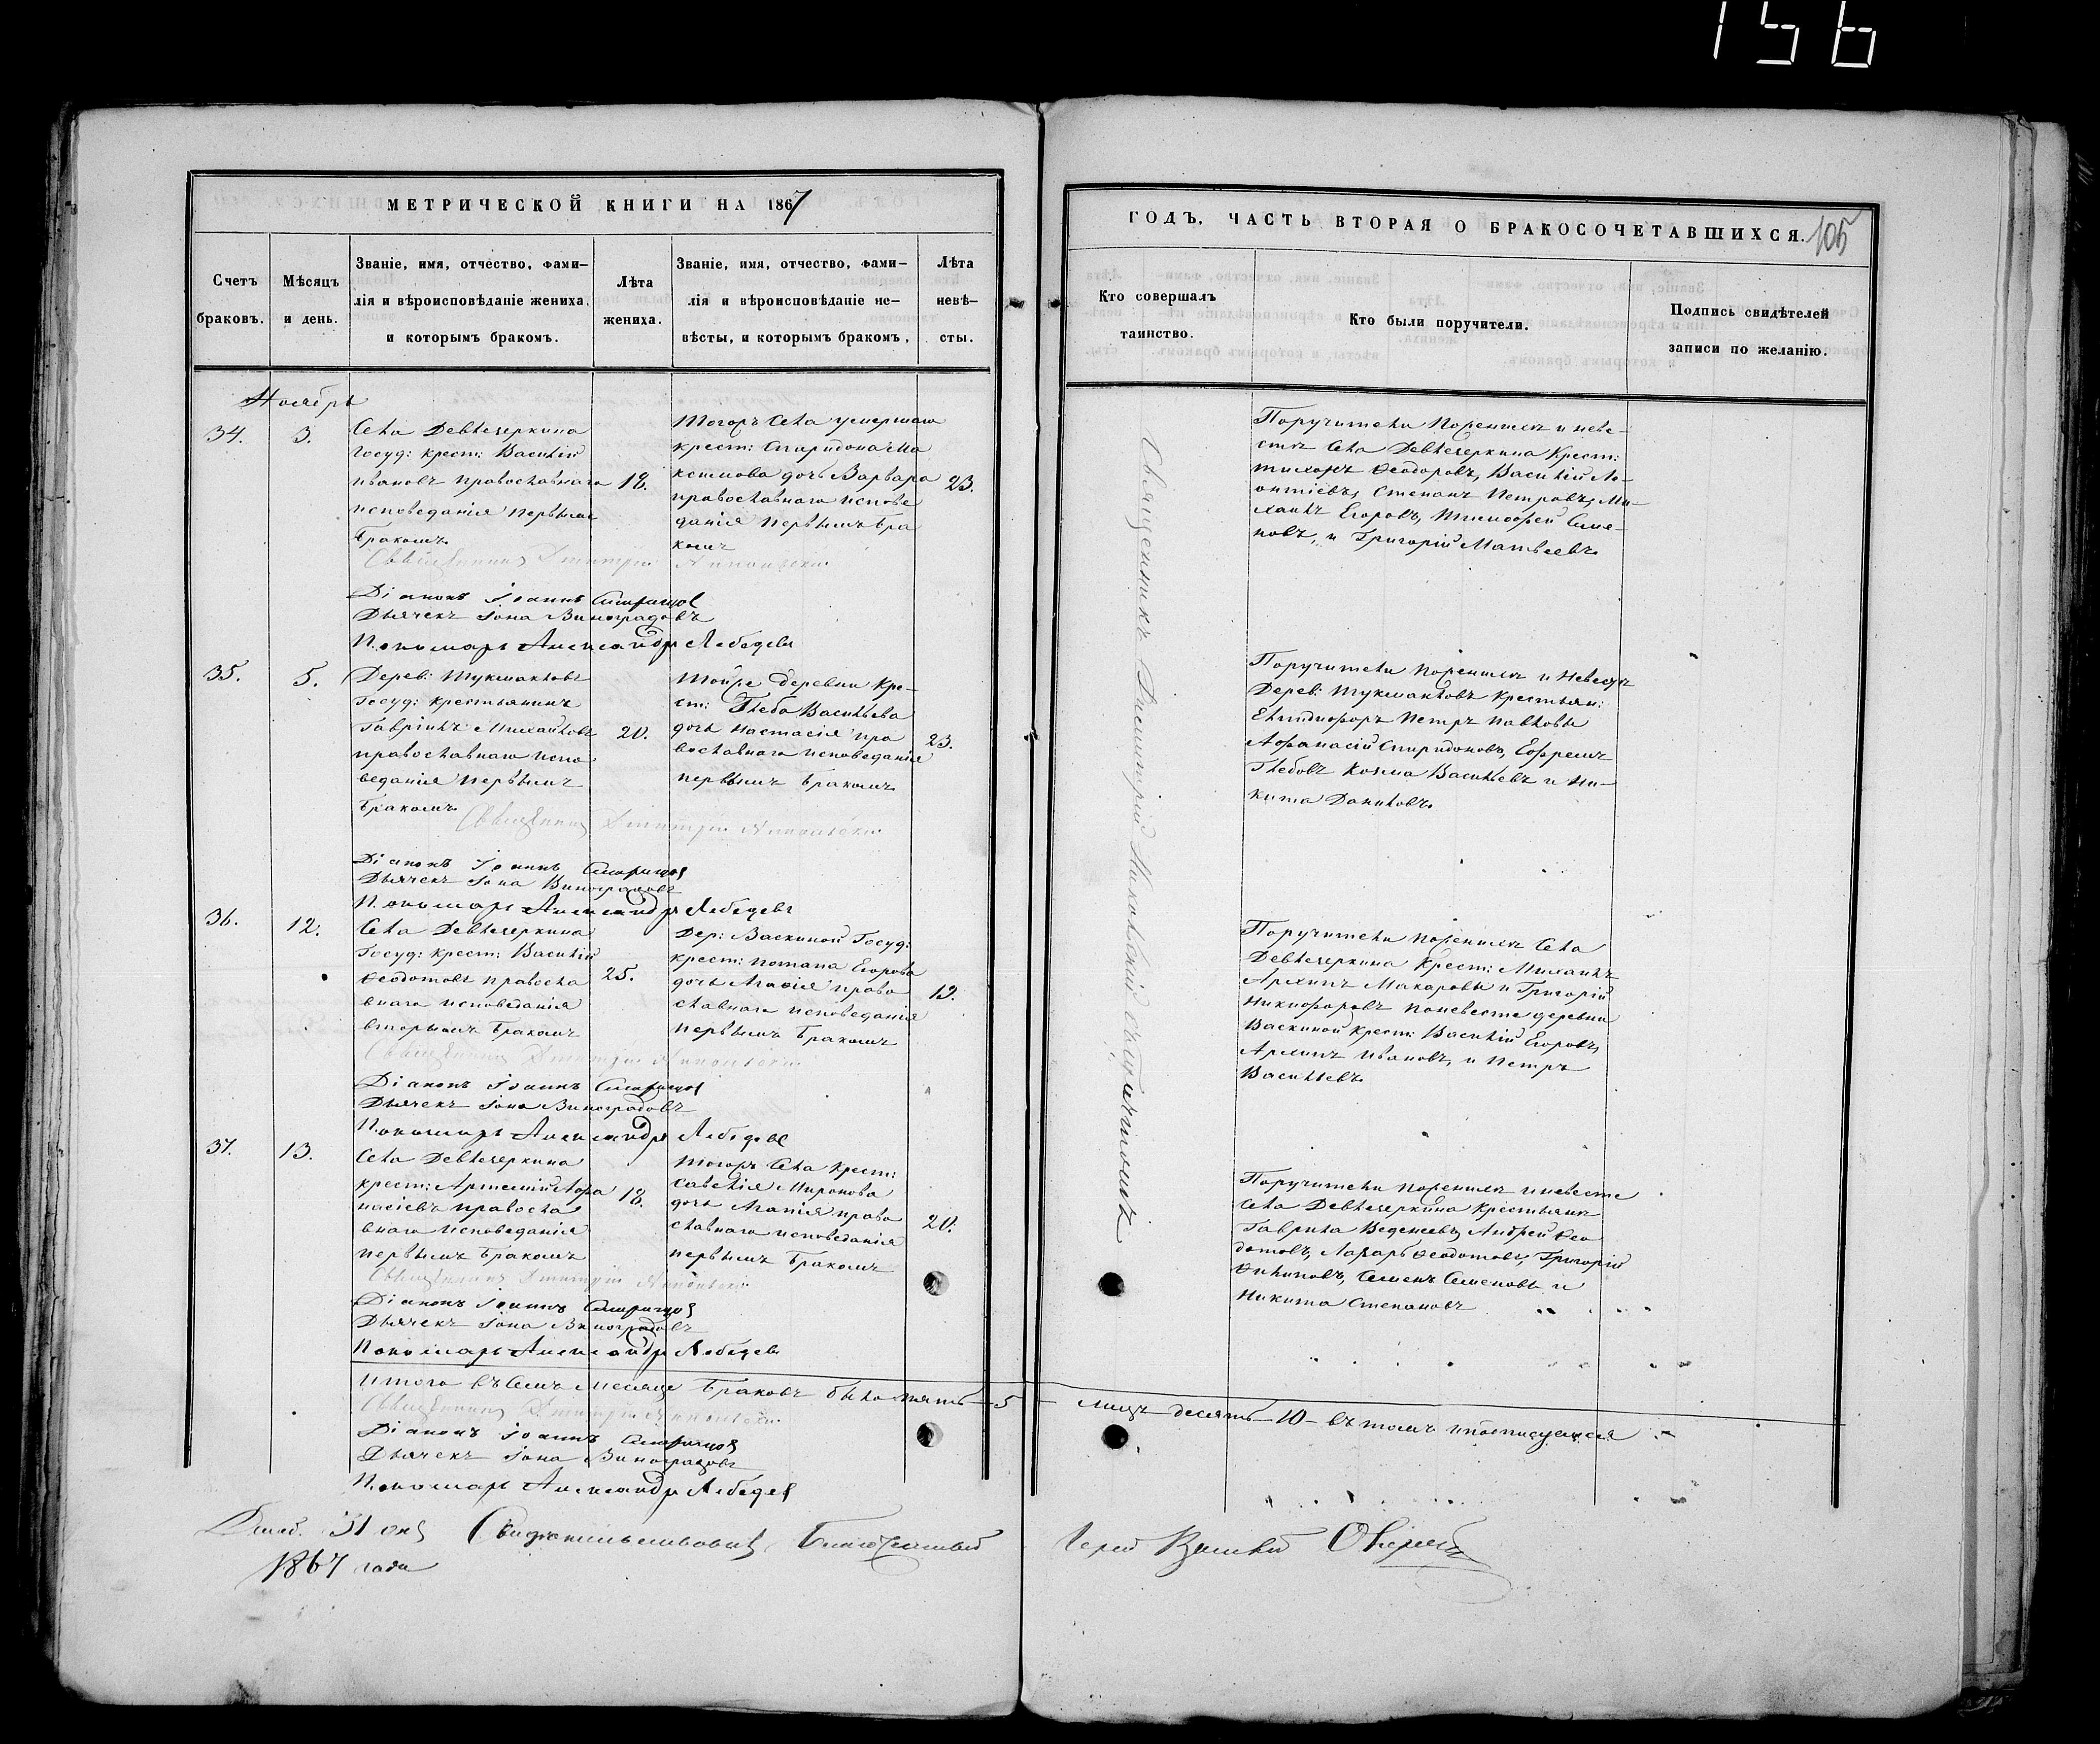 156
МЕТРИЧЕСКОЙ КНИГИ НА 1867
Счетъ
браковъ.
Мѣсяцъ
и день.
Званіе, имя, отчество, фами-
лія и вѣроисповѣданіе жениха,
и которымъ бракомъ.
Лѣта
жениха.
Званіе, имя, отчество, фами-
лія и вѣроисповѣданіе не-
вѣсты, и которымъ бракомъ.
Лѣта
невѣ-
сты.
Ноябрь
34.
3.
Села Девлезеркина
Госуд: крест: Василій
Ивановъ православнаго
исповеданія первымъ
бракомъ.
18.
Тогожъ Села умершаго
крест: Спиридона Ма
ксимова дочь Варвара
православнаго испове
данія первымъ бра
комъ
23.
Священникъ Димитрій Никольскій
Діаконъ Іоаннъ
Дьячекъ Іона Виноградовъ
Пономарь Александръ Лебедевъ
35.
5.
Дерев: Тукмакловъ
Госуд: крестьянинъ
Гавріилъ Михайловъ
православнаго испо
веданія первымъ
бракомъ.
20.
Тойже деревни кре-
ст: Глеба Васильева
дочь Настасія пра
вославнаго исповеданія
первымъ бракомъ
23.
Священникъ Димитрій Никольскій
Діаконъ Іоаннъ
Дьячекъ Іона Виноградовъ
Пономарь Александръ Лебедевъ
36.
12.
Села Девлезеркина
Госуд: крест: Василій
Ѳеодотовъ правосла
внаго исповеданія
вторымъ бракомъ
25.
Дер: Васкиной Госуд:
крест: Потапа Егорова
дочь право
славнаго исповеданія
первымъ бракомъ
19.
Священникъ Димитрій Никольскій
Діаконъ Іоаннъ
Дьячекъ Іона Виноградовъ
Пономарь Александръ Лебедевъ
37.
13.
Села Девлезеркина
крест: Артемій Афа
насіевъ правосла
внаго исповеданія
первымъ бракомъ
18.
Тогожъ Села крест:
Савелія Миронова
дочь право
славнаго исповеданія
первымъ бракомъ
20.
Священникъ Димитрій Никольскій
Діаконъ Іоаннъ
Дьячекъ Іона Виноградовъ
Пономарь Александръ Лебедевъ
Итого въ семъ месяце браковъ было пять 5
Священникъ Димитрій Никольскій
Діаконъ Іоаннъ
Дьячекъ Іона Виноградовъ
Пономарь Александръ Лебедевъ
31
1867 года
Свидетельствовалъ Благочинный
ГОДЪ, ЧАСТЬ ВТОРАЯ О БРАКОСОЧЕТАВШИХСЯ.
105
Кто совершалъ
таинство.
Кто были поручители.
Подпись свидѣтелей
записи по желанію.
Священникъ Димитрій Никольскій съ причтомъ
Поручители по женихе и неве-
сте Села Девлезеркина крест:
Тихонъ Ѳеодоровъ, Василій Ле-
онтіевъ, Степанъ Петровъ, Ми-
хаилъ Егоровъ, Тимофей Семе-
новъ, и Григорій Матвеевъ.
Поручители по женихе и невесте
Дерев: Тукмакловъ крестьян:
Елпидифоръ Петръ Павловы
Афанасій Спиридоновъ, Ефремъ
Глебовъ Козма Васильевъ и Ни-
кита Даниловъ.
Поручители по женихе Села
Девлезеркина крест: Михаилъ
Архипъ Макаровы и Григорій
Никифоровъ по невесте деревни
Васкиной крест: Василій Егоровъ,
Архипъ Ивановъ, и Петръ
Васильевъ.
Поручители по женихе и невесте
Села Девлезеркина крестьяне
Гаврила Веденеевъ, Андрей Ѳео
дотовъ, Лазарь Ѳеодотовъ, Григорій
Филиповъ, Семенъ Семеновъ и
Никита Степановъ
лицъ десять 10 въ томъ и подписуемся